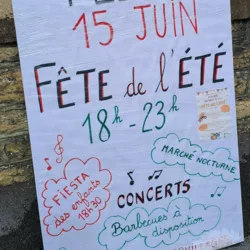 15 JUIN
FÊTE de l'ÉTÉ
18h - 23h
MARCHÉ NOCTURNE
FIESTA
des enfants
18h30
CONCERTS
Barbecues à
disposition